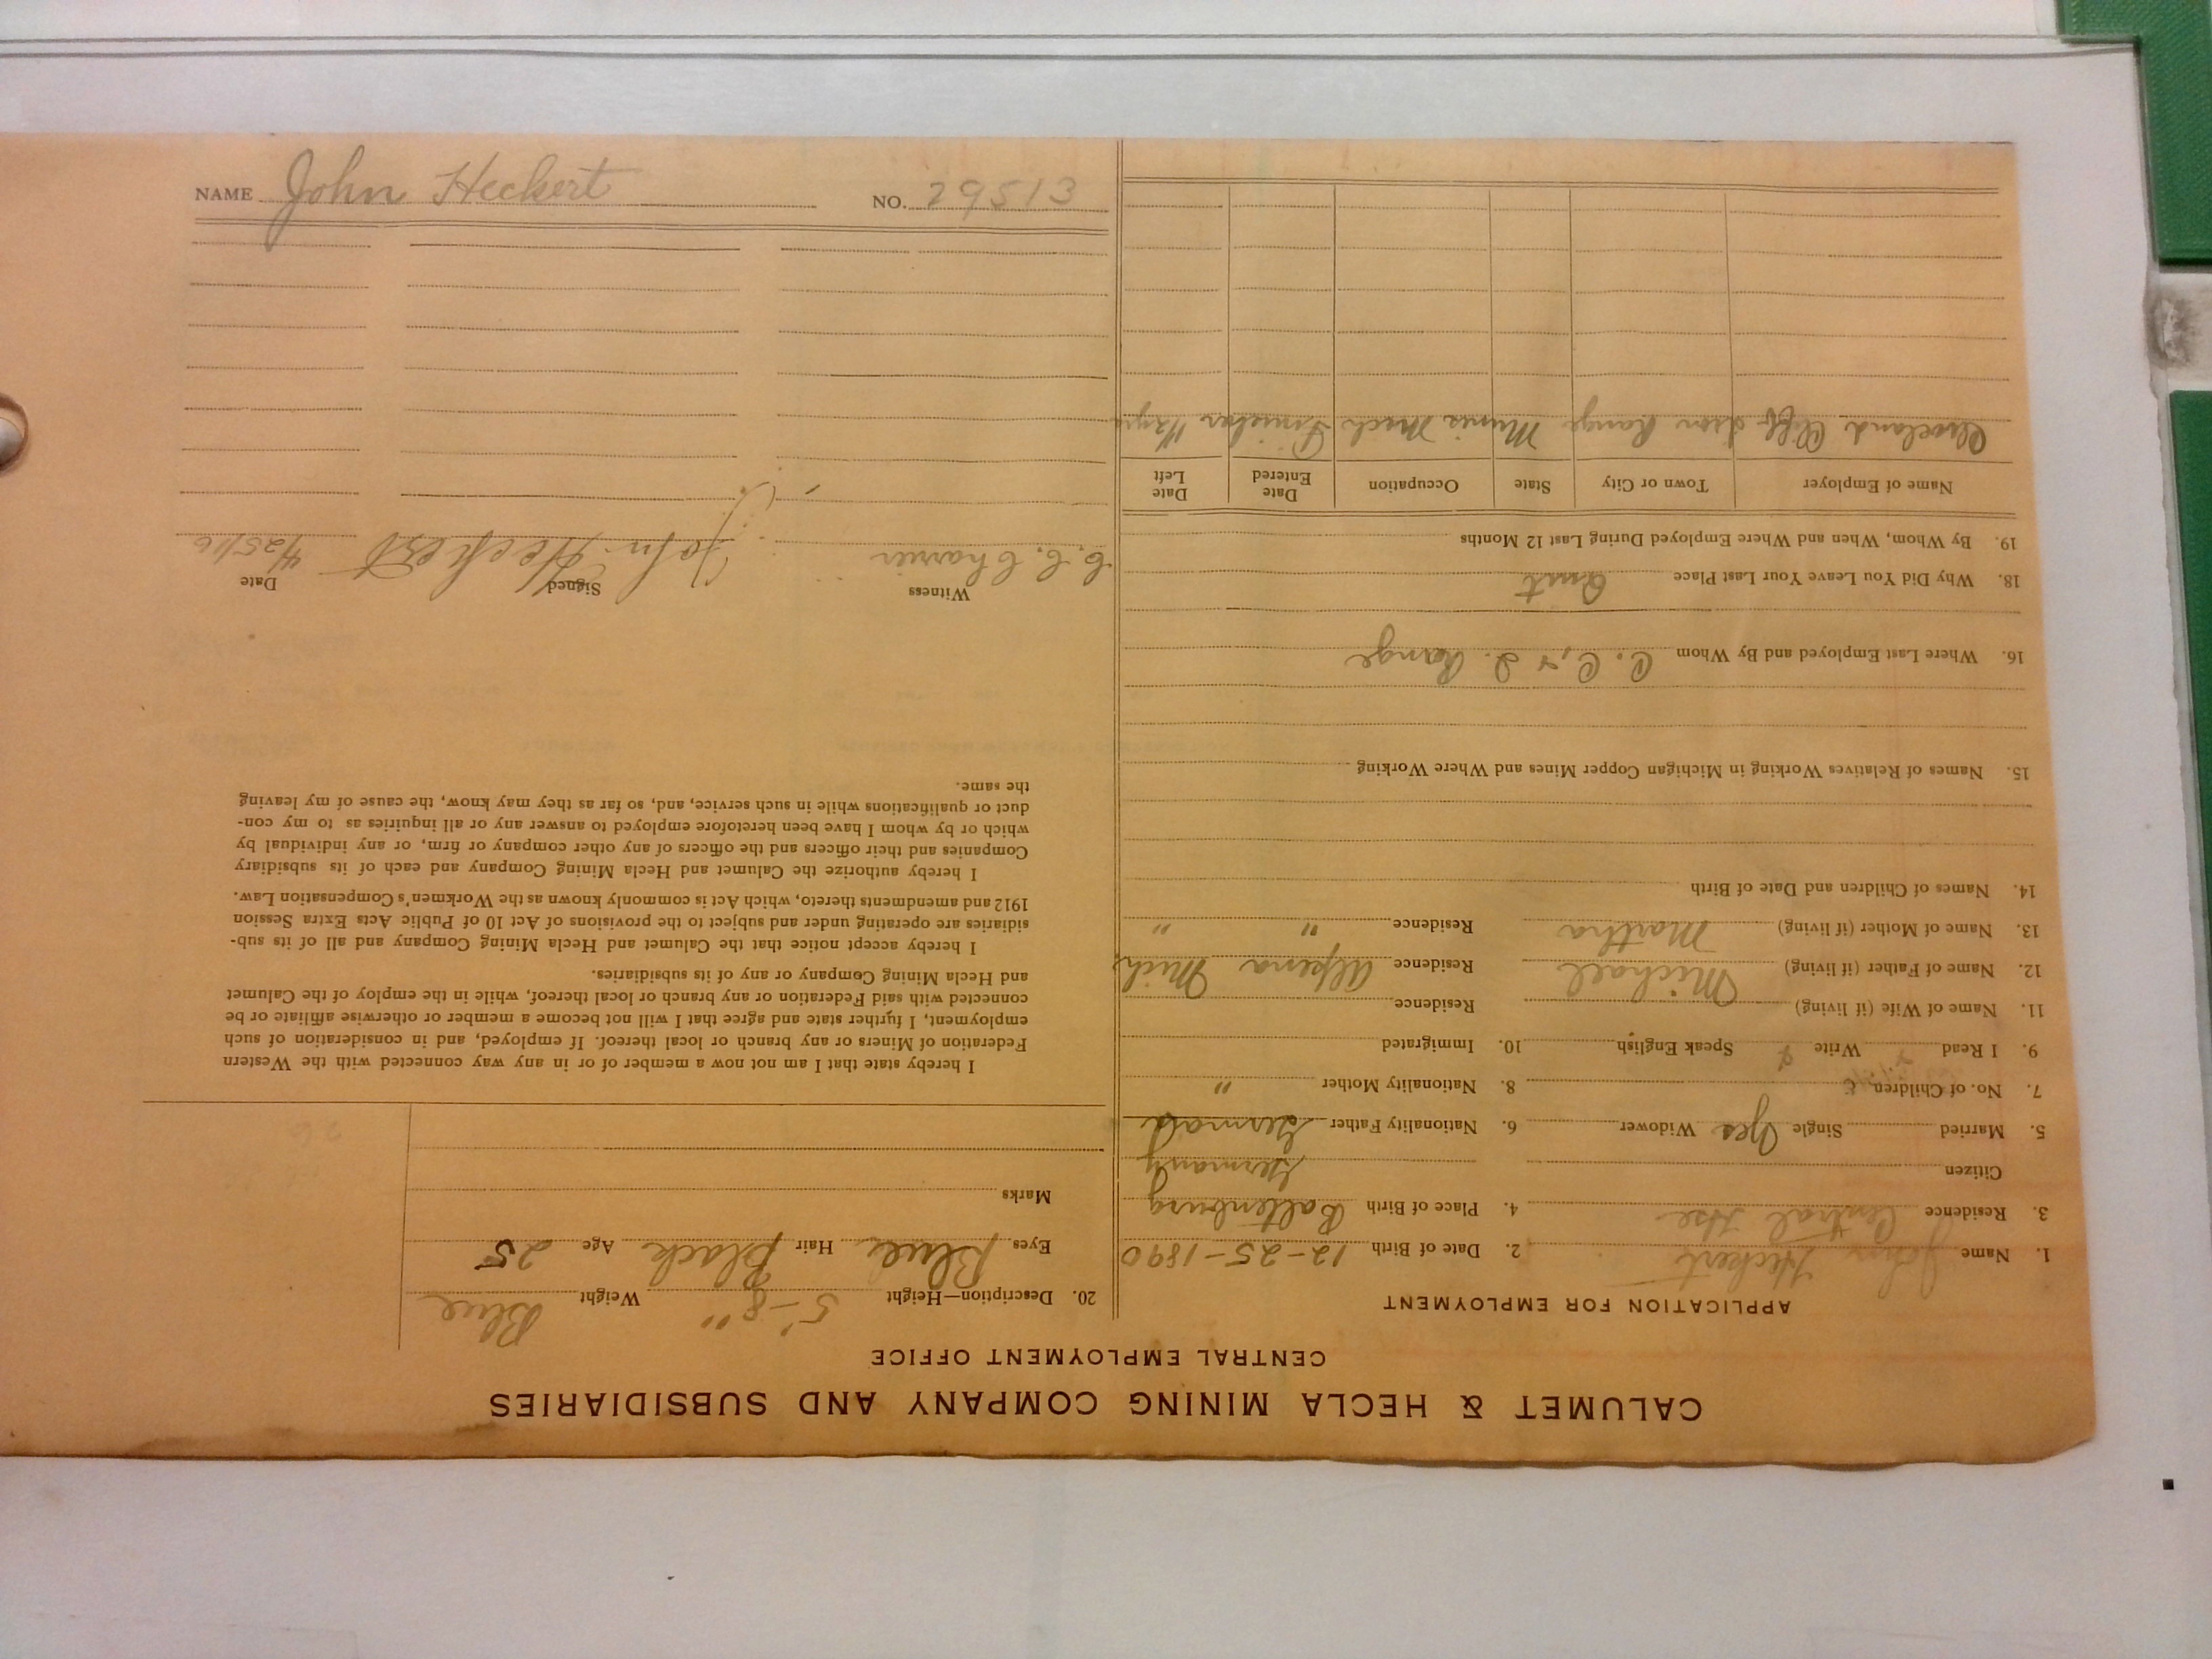 NAME John Heckert NO. 29513
CALUMET & HECLA MINING COMPANY AND SUBSIDIARIES
CENTRAL EMPLOYMENT OFFICE
APPLICATION FOR EMPLOYMENT
1. Name John Heckert 2. Date of Birth 12-25-1890
3. Residence Central Hse 4. Place of Birth
Citizen Germany
5. Married Single Yes Widower 6. Nationality Father German
7. No. of Children 8. Nationality Mother "
9. I Read Write Speak English 10. Immigrated
11. Name of Wife (if living) Residence
12. Name of Father (if living) Michael Residence Alpena Mich
13. Name of Mother (if living) Martha Residence " "
14. Names of Children and Date of Birth
15. Names of Relatives Working in Michigan Copper Mines and Where Working
16. Where Last Employed and By Whom C. C, & I. Range
18. Why Did You Leave Your Last Place Quit
19. By Whom, When and Where Employed During Last 12 Months
Name of Employer Town or City State Occupation Date Entered Date Left
Cleveland Cliff Iron Range
20. Description—Height 5'-8" Weight Blue
Eyes Blue Hair Black Age 25
Marks
I hereby state that I am not now a member of or in any way connected with the Western
Federation of Miners or any branch or local thereof. If employed, and in consideration of such
employment, I further state and agree that I will not become a member or otherwise affiliate or be
connected with said Federation or any branch or local thereof, while in the employ of the Calumet
and Hecla Mining Company or any of its subsidiaries.
I hereby accept notice that the Calumet and Hecla Mining Company and all of its sub-
sidiaries are operating under and subject to the provisions of Act 10 of Public Acts Extra Session
1912 and amendments thereto, which Act is commonly known as the Workmen's Compensation Law.
I hereby authorize the Calumet and Hecla Mining Company and each of its subsidiary
Companies and their officers and the officers of any other company or firm, or any individual by
which or by whom I have been heretofore employed to answer any or all inquiries as to my con-
duct or qualifications while in such service, and, so far as they may know, the cause of my leaving
the same.
Witness Signed Date
C. C. John Heckert 4/25/16